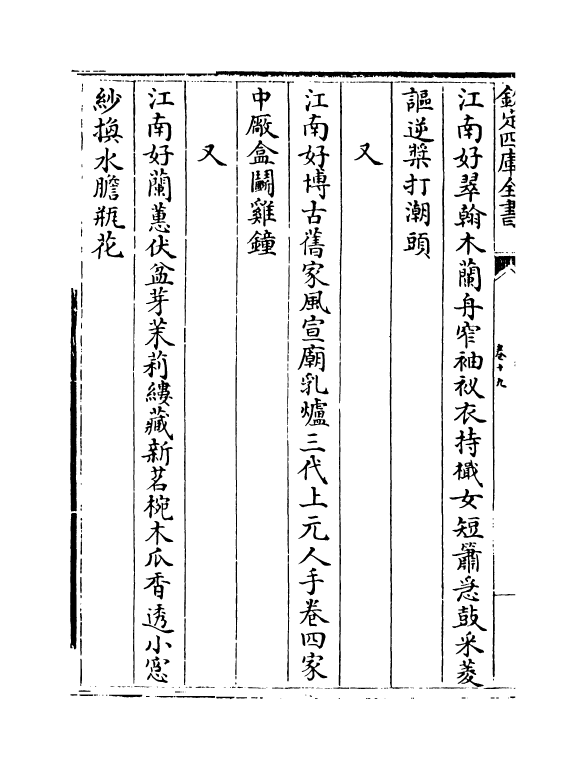 欽定四庫全書
卷十九
江南好翠翰木蘭舟窄袖衩衣持檝女短簫急鼓采菱
謳逆槳打潮頭
又
江南好博古舊家風宣廟乳爐三代上元人手卷四家
中厰盒鬭雞鐘
又
江南好蘭蕙伏盆芽茉莉縷藏新茗椀木瓜香透小窓
紗換水膽瓶花